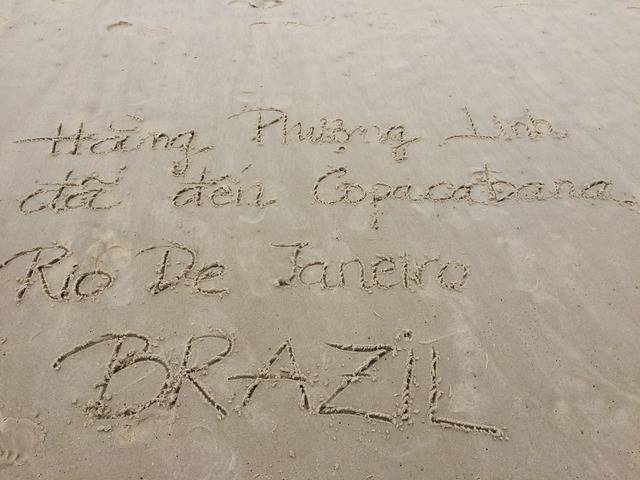 Hằng Phượng Linh
đã đến Copacabana
Rio De Janeiro
BRAZiL